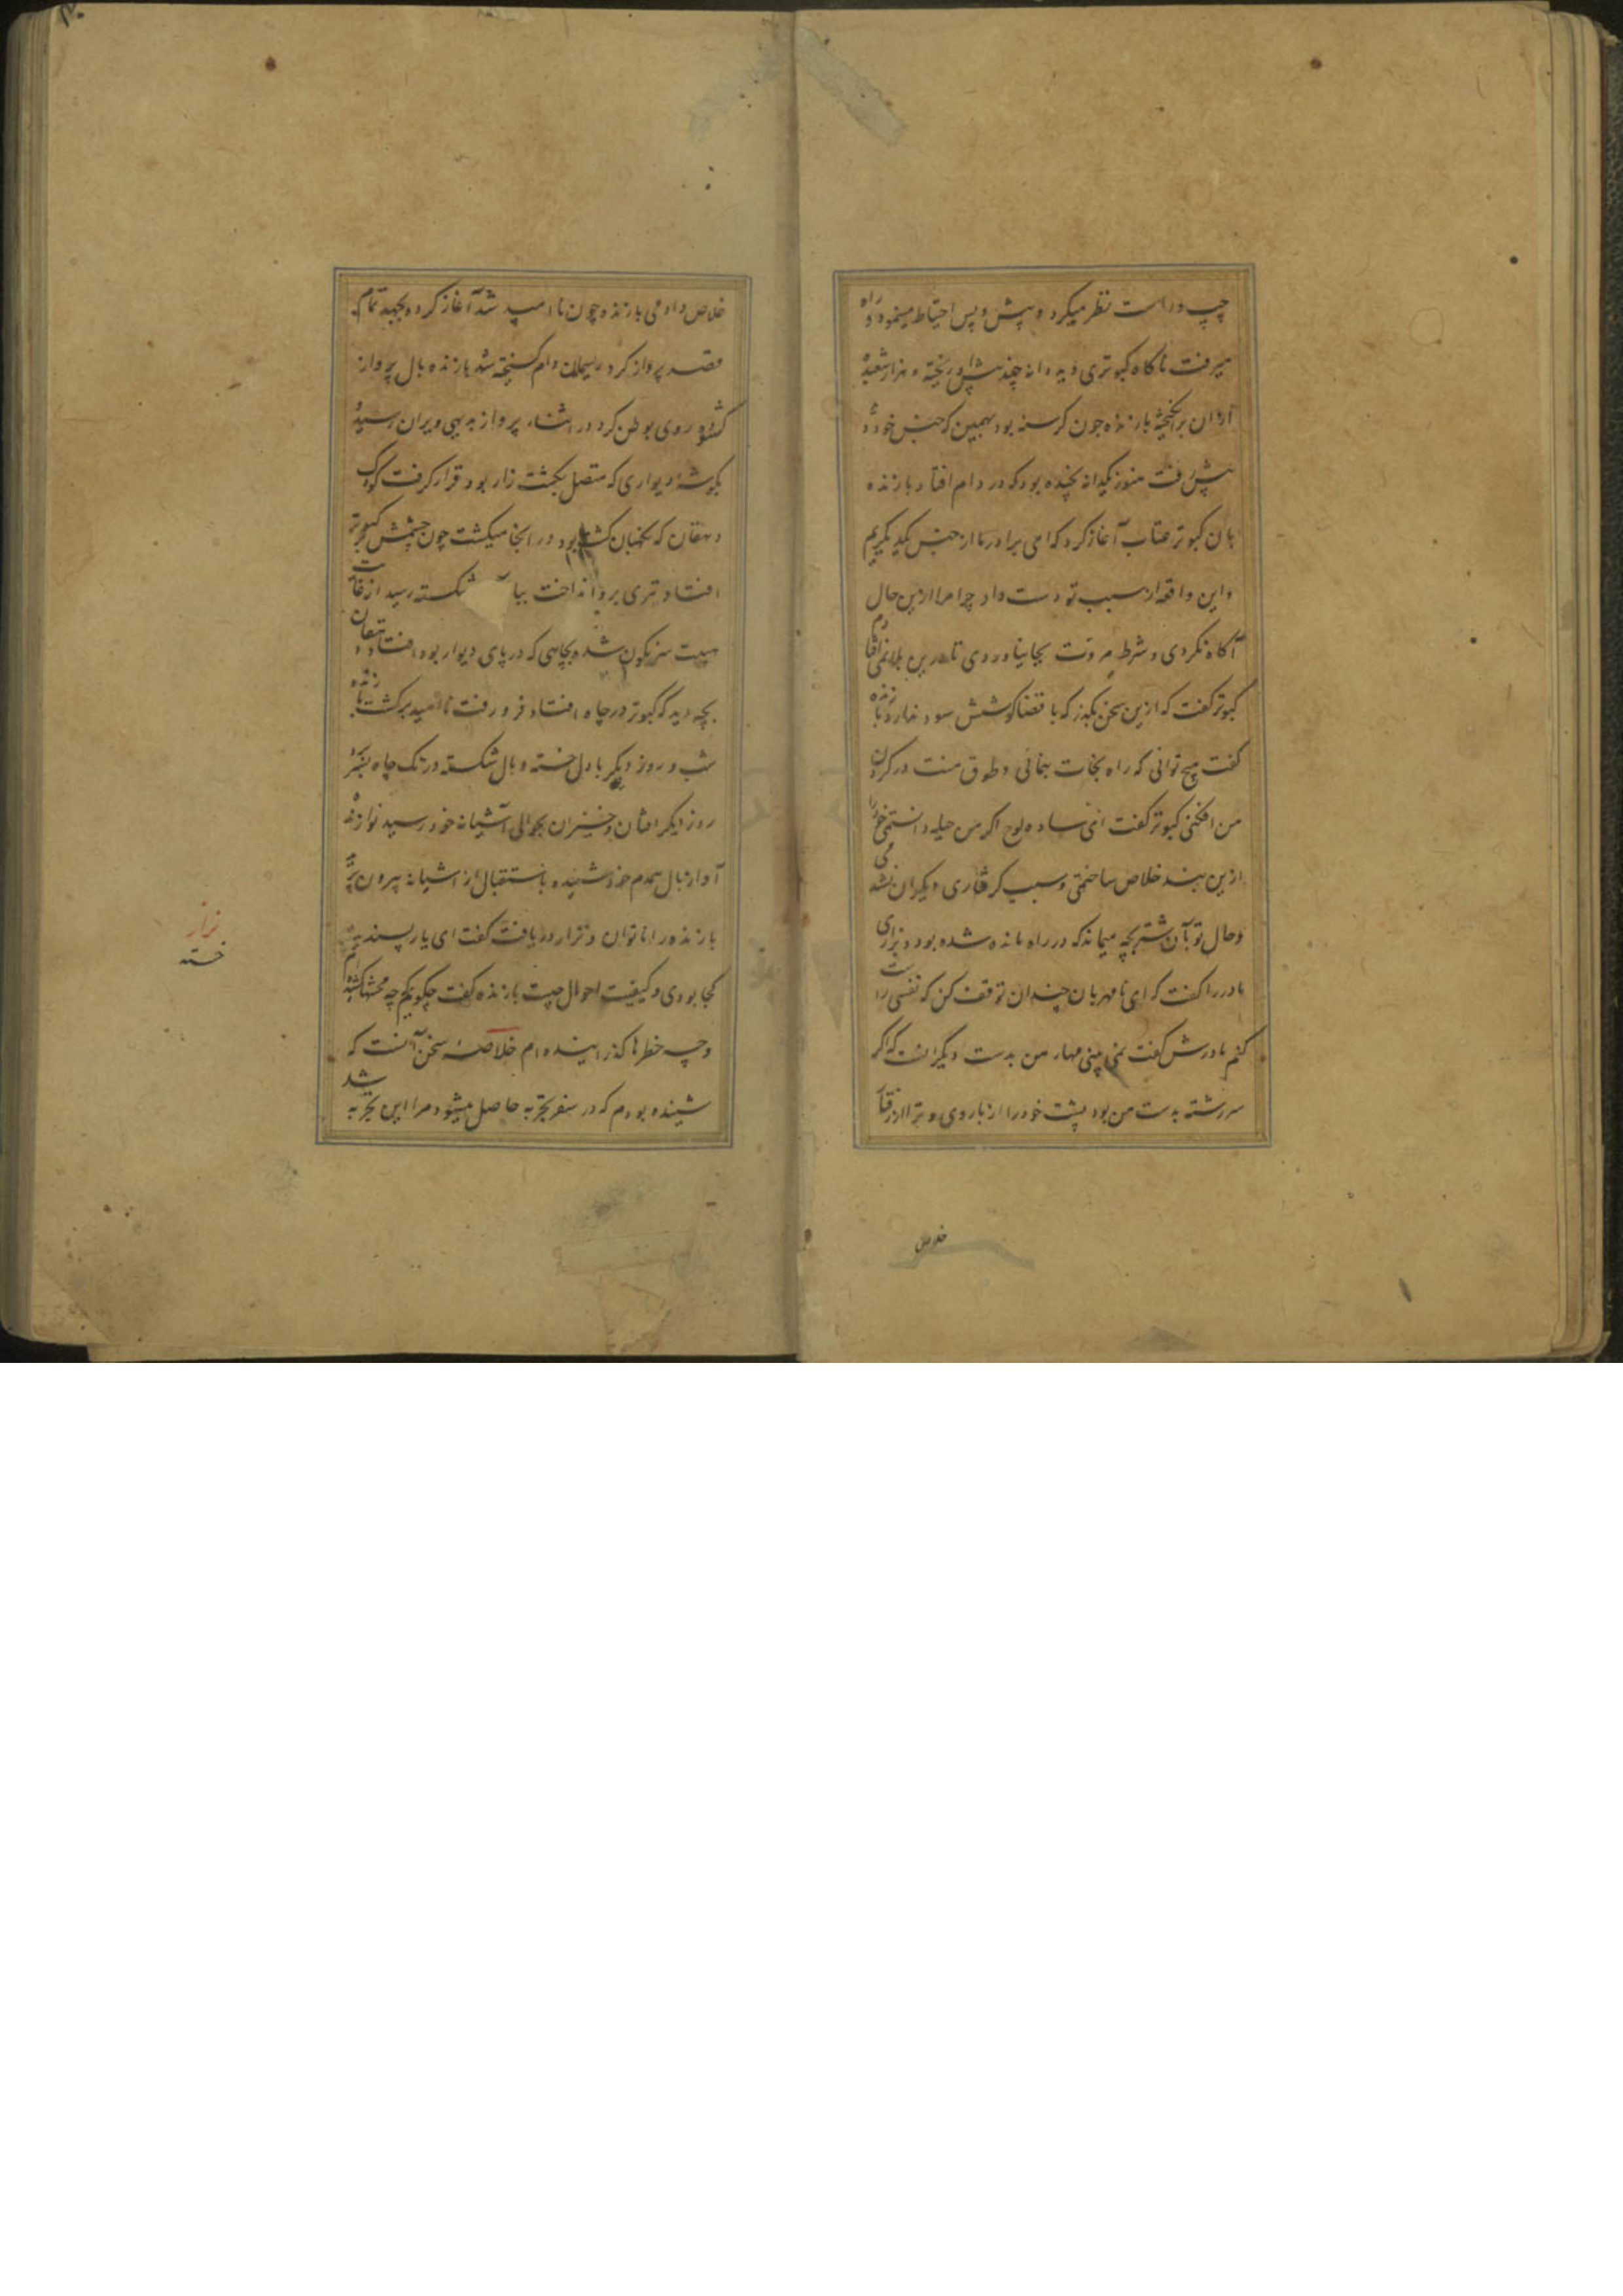 چپ و راست نظر میکرد و پیش و پس احتیاط مینمود و راه
میرفت ناکاه کبوتری دید دانه چند پیش او ریخته و هزار شعبده
از ان برانکیخته بازنده جون کرسنه بود همین که جنس خود دید
پیش رفت هنوز یکدانه نچیده بود که در دام افتاد بازنده
بان کبوتر عتاب آغاز کرد که ای برادر ما از جنس یکدیکریم
و این واقعه از سبب تو دست داد چرا مرا ازین حال
آکاه نکردی و شرط مروت بجا نیاوردی تا درین بلا نمی افتادم
کبوتر کفت که ازین سخن بکذر که با قضا کوشش سود ندارد بازنده
کفت هیچ توانی که راه نجات بنمائی و طوق منت در کردن
من افکنی کبوتر کفت ای ساده لوح اکر من حیله دانستمی خود را
ازین بند خلاص ساختمی و سبب کرفتاری دیکران نشدمی
و حال تو بآن شتر بچه میماند که در راه مانده شده بود و بزاری
مادر را کفت که ای نامهربان چندان توقف کن که نفسی راست
کنم مادرش کفت نمی بینی مهار من بدست دیکرانست که اکر
سررشته بدست من بود پشت خود را از بار وی و ترا از رفتار
خلاص
خلاص دادمی بازنده چون نا امید شد آغاز کرد و بجهد تمام
قصد پرواز کرد ریسمان دام کسیخته شد بازنده بال پرواز
کشوده روی بوطن کرد در اثناء پرواز بدیهی ویران رسید
بکوشه دیواری که متصل بکشت زار بود قرار کرفت کودک
دهقان که نکهبان کشت بود در انجا میکشت چون چشمش بر کبوتر
افتاد تیری برو انداخت شکسته رسید از غایت
هیبت سرنکون شده بچاهی که در پای دیوار بود افتاد و دهقان
بچه دید که کبوتر در چاه افتاد فرو رفت نا امید برکشت بازنده
شب و روز دیکر با دل خسته و بال شکسته در تک چاه بسر
روز دیکر افتان و خیزان بحوالی آشیانه خود رسید نوازنده
آواز بال همدم خود شنیده باستقبال از اشیانه بیرون پرید
بازنده را ناتوان و نزار دریافت کفت ای یار پسندیده
کجا بودی و کیفیت احوال چیست بازنده کفت چکویم چه محنتها کشیده ام
و چه خطرها کذرانیده ام خلاصه سخن آنست که
شنیده بودم که در سفر تجربه حاصل میشود مرا این تجربه شد
نزار
خسته